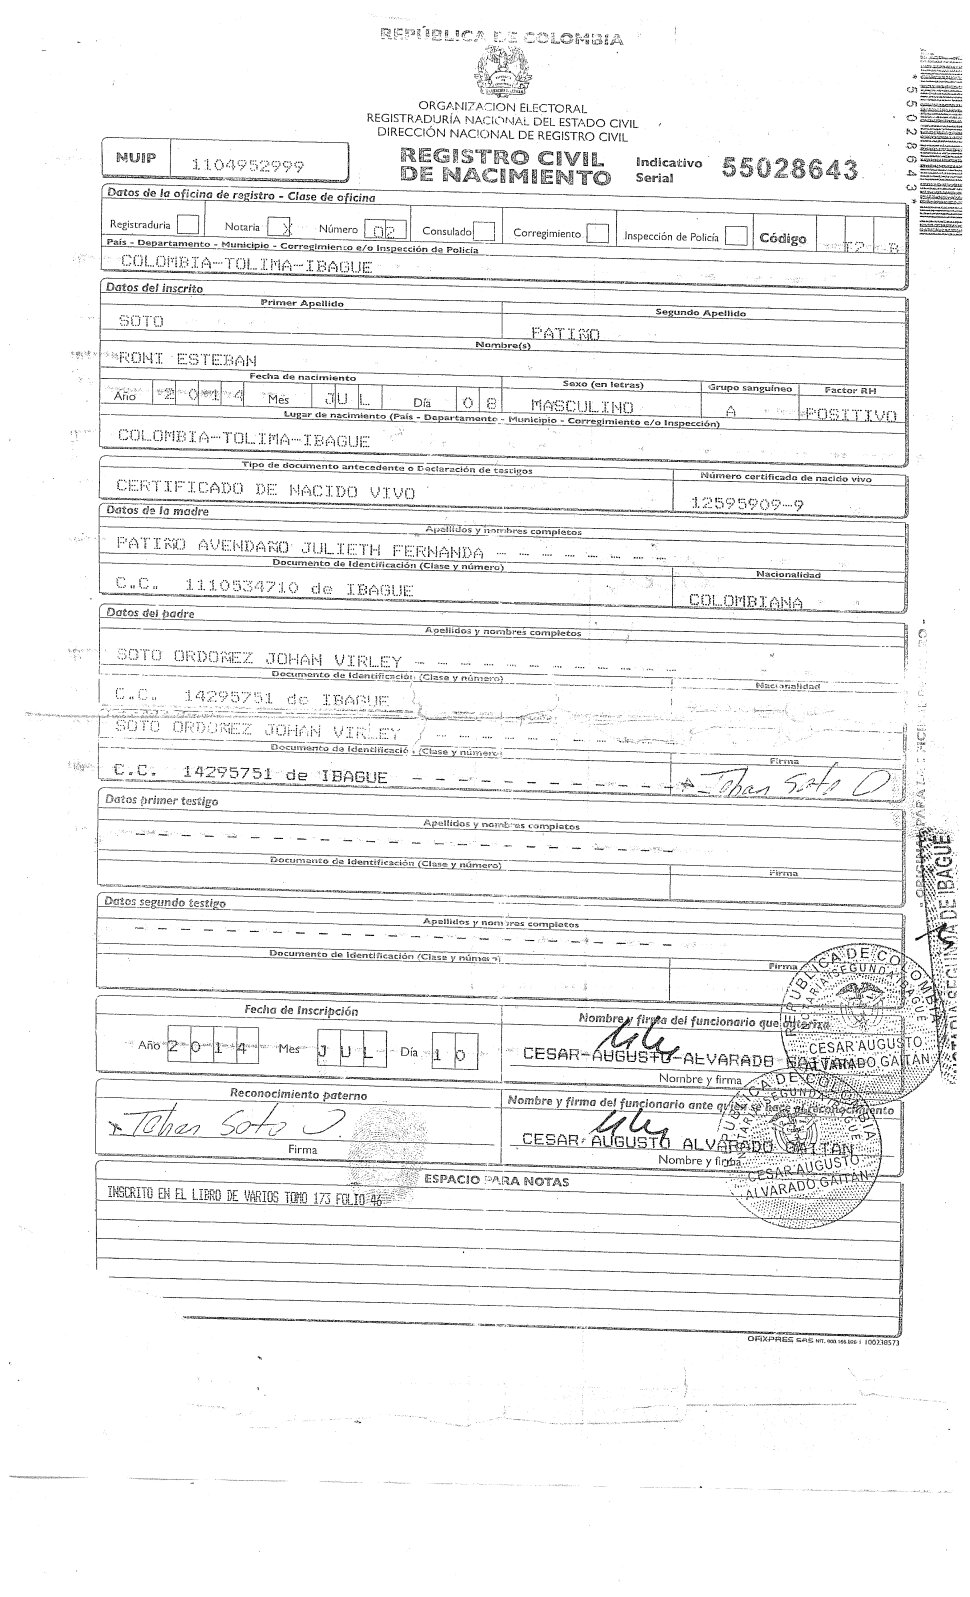 REPÚBLICA DE COLOMBIA
ORGANIZACIÓN ELECTORAL
REGISTRADURÍA NACIONAL DEL ESTADO CIVIL
DIRECCIÓN NACIONAL DE REGISTRO CIVIL
NUIP 1104952999
REGISTRO CIVIL DE NACIMIENTO
Indicativo Serial 55028643
* 55028643 *
Datos de la oficina de registro - Clase de oficina
Registraduría Notaría X Número 02 Consulado Corregimiento Inspección de Policía Código
País - Departamento - Municipio - Corregimiento e/o Inspección de Policía
COLOMBIA-TOLIMA-IBAGUE
Datos del inscrito
Primer Apellido Segundo Apellido
SOTO PATIÑO
Nombre(s)
RONI ESTEBAN
Fecha de nacimiento Sexo (en letras) Grupo sanguíneo Factor RH
Año 2014 Mes JUL Día 08 MASCULINO A POSITIVO
Lugar de nacimiento (País - Departamento - Municipio - Corregimiento e/o Inspección)
COLOMBIA-TOLIMA-IBAGUE
Tipo de documento antecedente o Declaración de testigos Número certificado de nacido vivo
CERTIFICADO DE NACIDO VIVO 12595909-9
Datos de la madre
Apellidos y nombres completos
PATIÑO AVENDAÑO JULIETH FERNANDA - - - - - - - -
Documento de Identificación (Clase y número) Nacionalidad
C.C. 1110534710 de IBAGUE COLOMBIANA
Datos del padre
Apellidos y nombres completos
SOTO ORDOÑEZ JOHAN VIRLEY - - - - - - - - - - -
Documento de Identificación (Clase y número) Nacionalidad
C.C. 14295751 de IBAGUE
SOTO ORDOÑEZ JOHAN VIRLEY - - - - - - - - - - -
Documento de Identificación (Clase y número) Firma
C.C. 14295751 de IBAGUE - - - - - - - - - - Johan Soto O
Datos primer testigo
Apellidos y nombres completos
Documento de Identificación (Clase y número) Firma
Datos segundo testigo
Apellidos y nombres completos
Documento de Identificación (Clase y número) Firma
Fecha de Inscripción Nombre y firma del funcionario que autoriza
Año 2014 Mes JUL Día 10 CESAR-AUGUSTO-ALVARADO GAITAN
Nombre y firma
Reconocimiento paterno Nombre y firma del funcionario ante quien se hace el reconocimiento
Johan Soto O. CESAR AUGUSTO ALVARADO GAITAN
Firma Nombre y firma
ESPACIO PARA NOTAS
INSCRITO EN EL LIBRO DE VARIOS TOMO 173 FOLIO 46
REPUBLICA DE COLOMBIA
NOTARIA SEGUNDA IBAGUE
CESAR AUGUSTO
ALVARADO GAITÁN
REPUBLICA DE COLOMBIA
NOTARIA SEGUNDA IBAGUE
CESAR AUGUSTO
ALVARADO GAITÁN
NOTARIA SEGUNDA DE IBAGUE